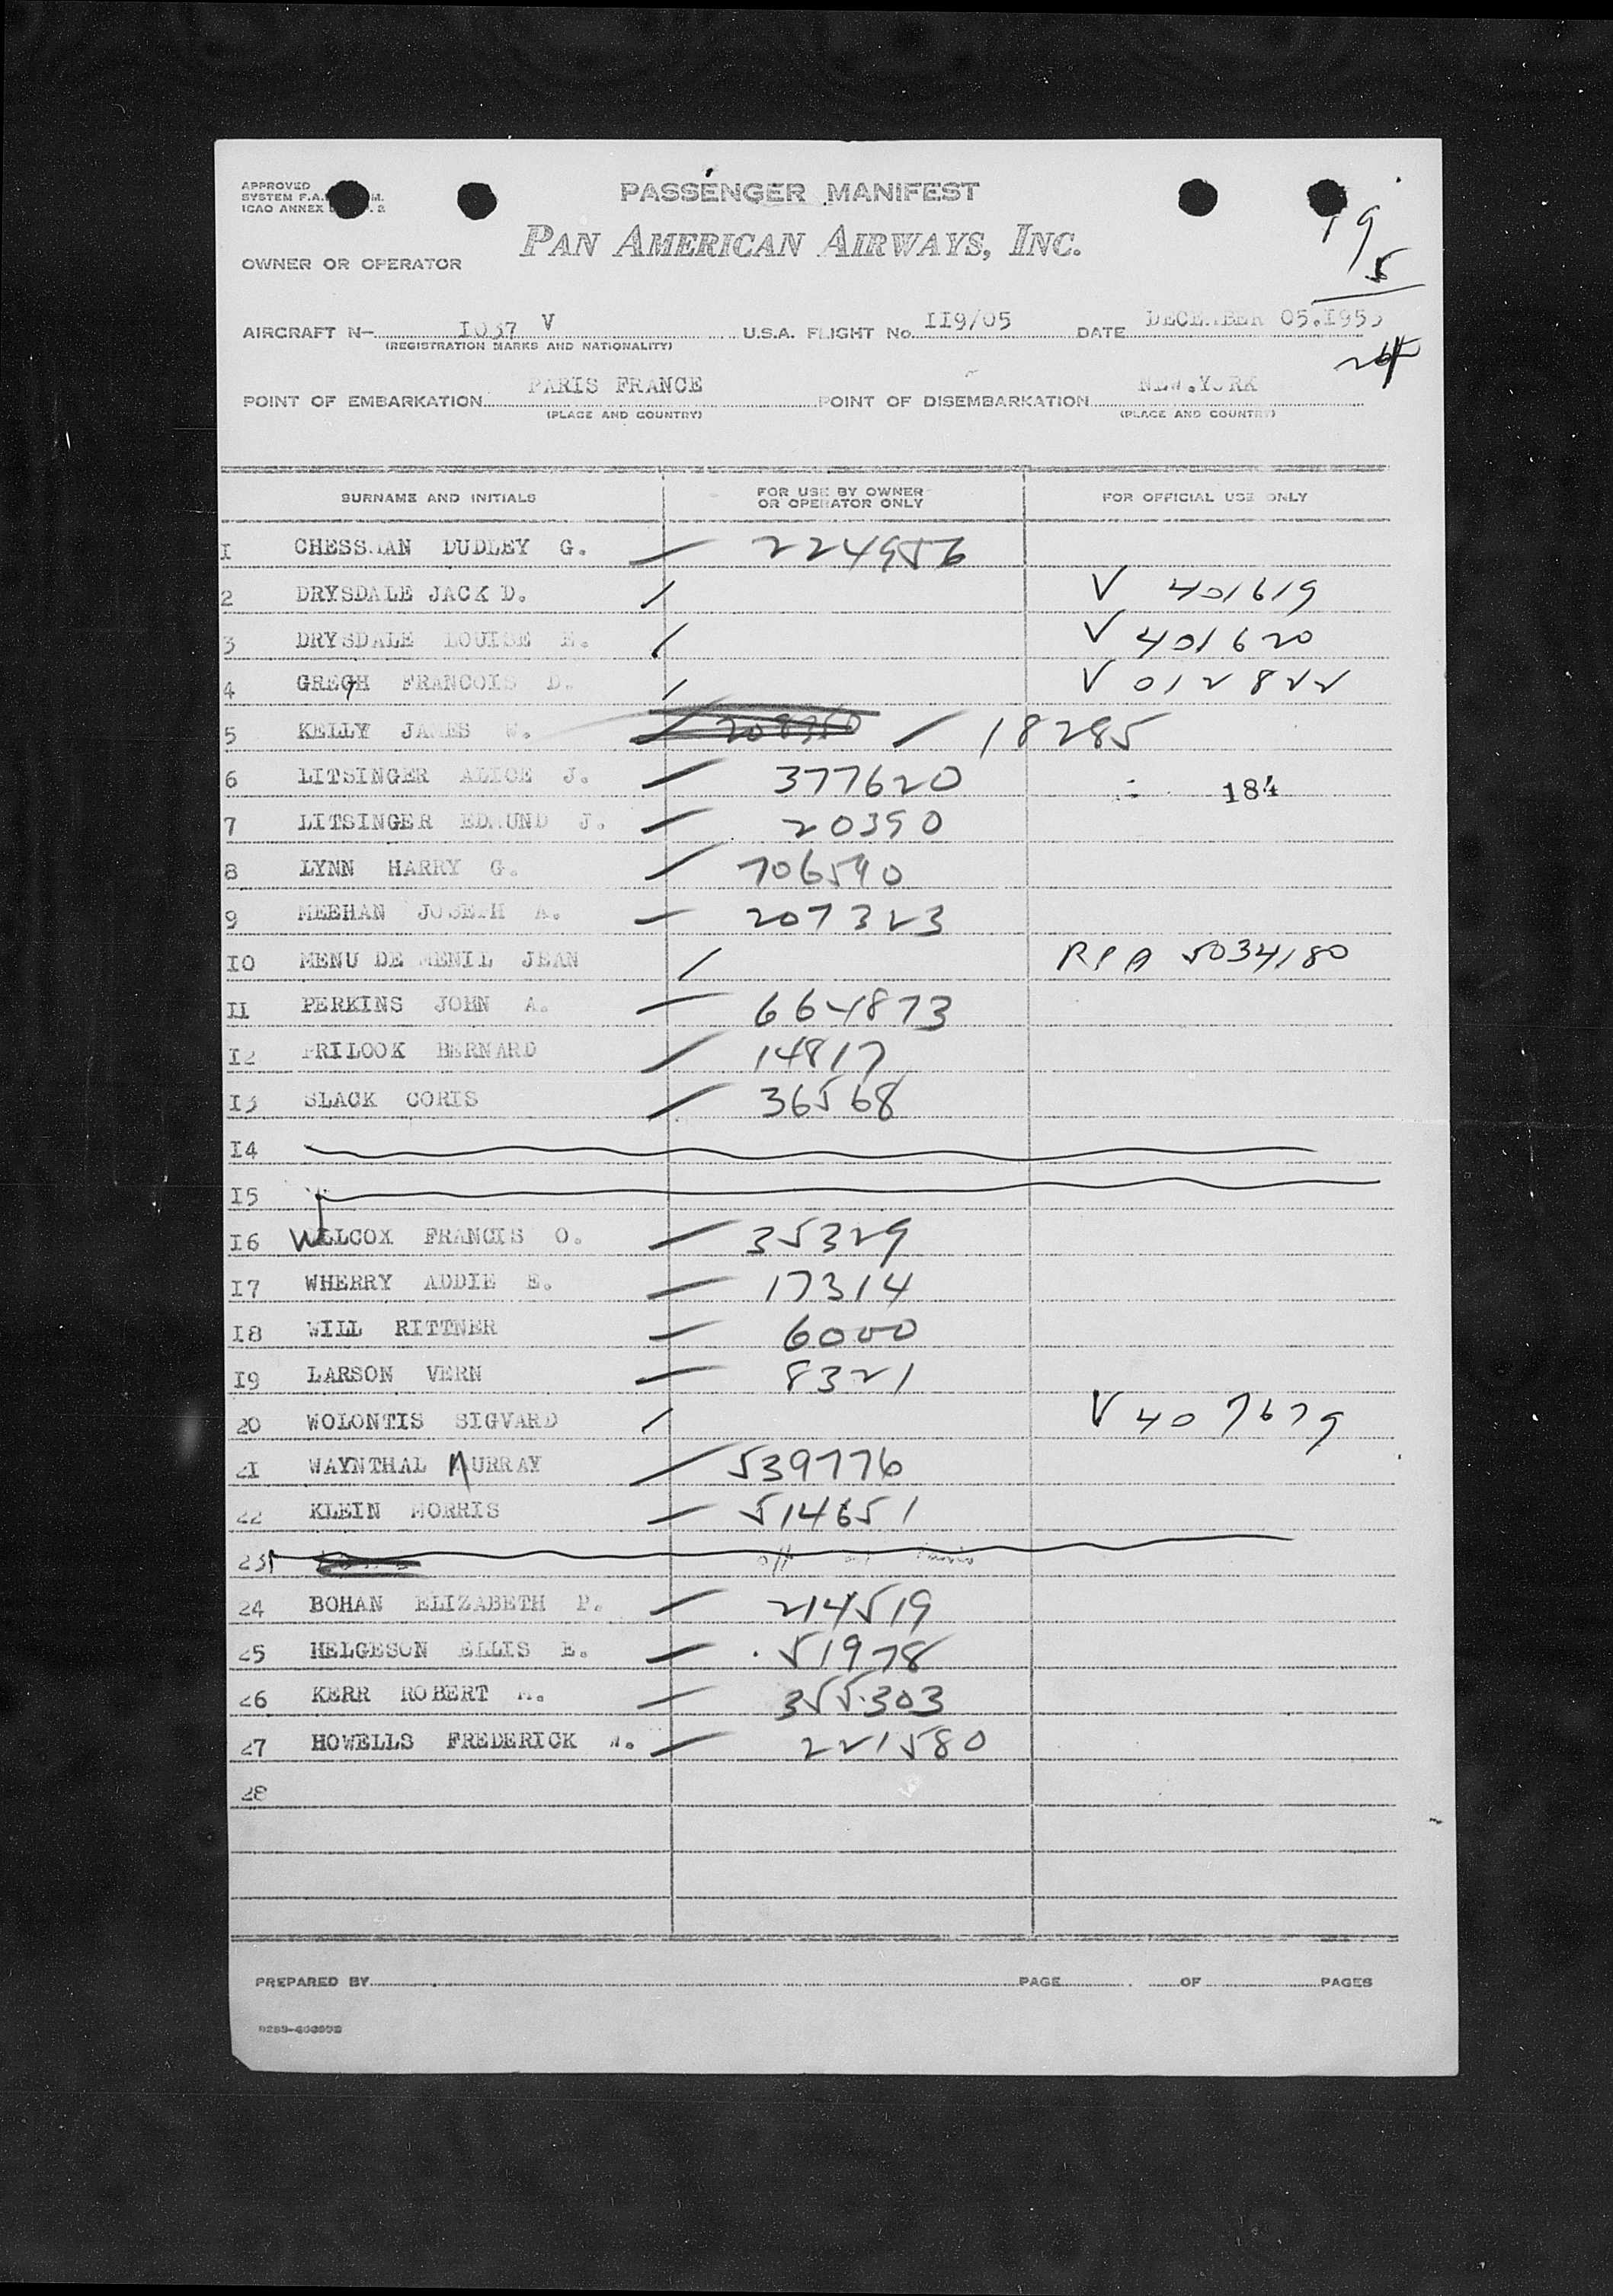 APPROVED
SYSTEM F.A. M.
ICAO ANNEX 2
PASSENGER MANIFEST
PAN AMERICAN AIRWAYS, INC.
19
5
OWNER OR OPERATOR
AIRCRAFT N- 1037 V U.S.A. FLIGHT No. II9/05 DATE DECEMBER 05.1953
(REGISTRATION MARKS AND NATIONALITY)
24
POINT OF EMBARKATION PARIS FRANCE POINT OF DISEMBARKATION NEW.YORK
(PLACE AND COUNTRY) (PLACE AND COUNTRY)
SURNAME AND INITIALS FOR USE BY OWNER OR OPERATOR ONLY FOR OFFICIAL USE ONLY
I CHESSMAN DUDLEY G. 224956
2 DRYSDALE JACK D. V 401619
3 DRYSDALE LOUISE E. V 401620
4 GREGH FRANCOIS D. V 012822
5 KELLY JAMES W. 208350 18285
6 LITSINGER ALICE J. 377620 184
7 LITSINGER EDMUND J. 20390
8 LYNN HARRY G. 706540
9 MEEHAN JOSEPH A. 207323
I0 MENU DE MENIL JEAN RPA 5034180
II PERKINS JOHN A. 664873
I2 PRILOOK BERNARD 14817
I3 SLACK CORIS 36568
I4
I5
I6 WILCOX FRANCIS O. 35329
I7 WHERRY ADDIE E. 17314
I8 WILL RITTNER 6000
I9 LARSON VERN 8321
20 WOLONTIS SIGVARD V 407679
21 WAYNTHAL MURRAY 539776
22 KLEIN MORRIS 514651
23 off at Paris
24 BOHAN ELIZABETH P. 214519
25 HELGESON ELLIS E. 51978
26 KERR ROBERT M. 355303
27 HOWELLS FREDERICK W. 221580
28
PREPARED BY PAGE OF PAGES